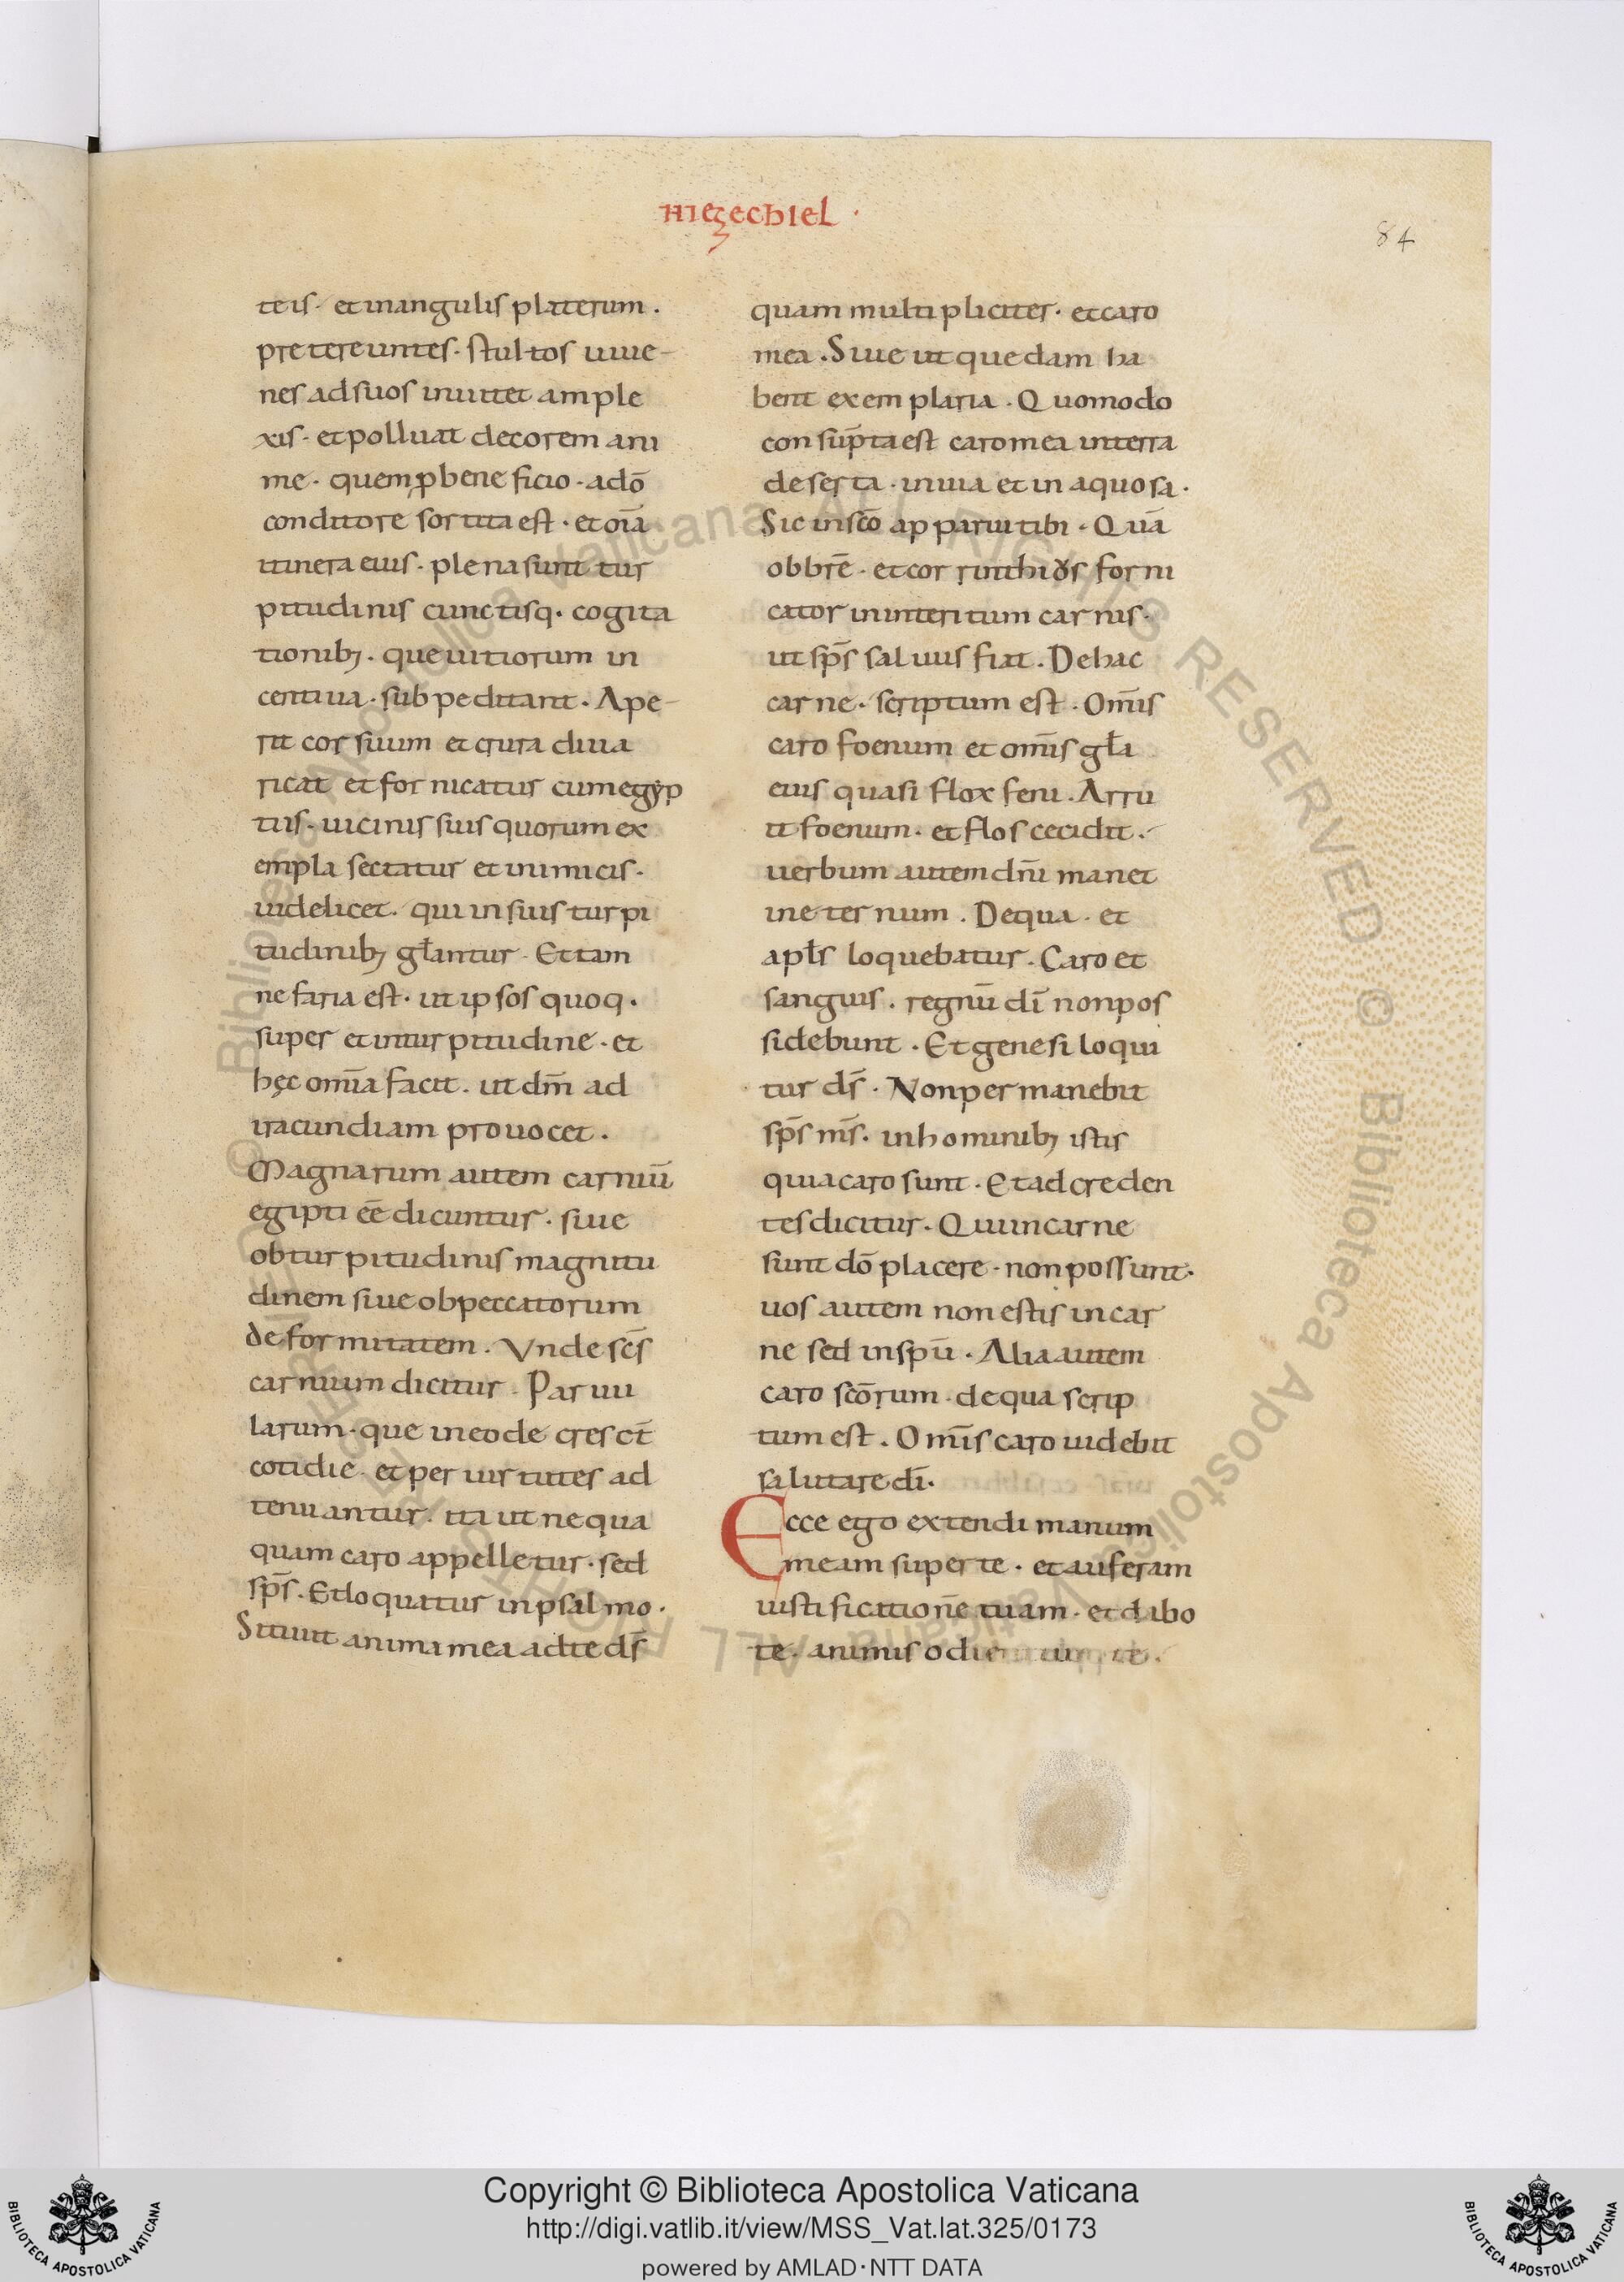 in ezechiel ·
84
teis · et in angulis platterum ·
pretereuntes · stultos iuue-
nes ad suos inuitet ample
xis · et polluat decorem ani
me · quem ꝓ beneficio · a dō
conditore sortita est · et oīa
itinera eius · plena sunt tur
pitudinis cunctisq· cogita
tionibꝫ · que uitiorum in
centiua · subpeditant · Ape-
rit cor suum et crura diua
ricat et fornicatur cum egyp
tiis · uicinis suis quorum ex
empla sectatur et inimicis ·
uidelicet · qui in suis turpi
tudinibꝫ gl̄antur · Et tam
nefaria est · ut ipsos quoq·
super et in turpitudine · et
hęc omīa facit · ut dm̄ ad
iracundiam prouocet ·
Magnarum autem carniū
egipti eē dicuntur · siue
ob turpitudinis magnitu
dinem siue ob peccatorum
deformitatem · Vnde sc̄s
carnium dicitur · Paruu
larum · que in eo decresct̄
cotidie · et per uirtutes ad
tenuantur · ita ut nequa
quam caro appelletur · sed
sp̄s · Et loquatur in psalmo ·
Sitiuit anima mea ad te ds̄
quam multipliciter · et caro
mea · Siue ut quedam ha
bent exemplaria · Quomodo
consūpta est caro mea in terra
deserta · inuia et inaquosa ·
Sic in sc̄o apparui tibi · Quā
ob brē · et corrinthiꝺs forni
cator in interitum carnis ·
ut sp̄s saluus fiat · De hac
carne · scriptum est · Omīs
caro foenum et omīs gl̄a
eius quasi flox feni · Arru
it foenum · et flos cecidit ·
uerbum autem dn̄i manet
in eternum · De qua · et
apl̄s loquebatur · Caro et
sanguis · regnū dī non pos
sidebunt · Et genesi loqui
tur ds̄ · Non permanebit
sp̄s ms̄ · in hominibꝫ istis
quia caro sunt · Et ad creden
tes dicitur · Qui in carne
sunt dō placere · non possunt ·
uos autem non estis in car
ne sed in spū · Alia autem
caro scōrum · de qua scrip
tum est · Omīs caro uidebit
salutare dī ·
Ecce ego extendi manum
meam super te · et auferam
iustificationē tuam · et dabo
te · animis odientium te ·
Copyright © Biblioteca Apostolica Vaticana
http://digi.vatlib.it/view/MSS_Vat.lat.325/0173
powered by AMLAD·NTT DATA
BIBLIOTECA APOSTOLICA VATICANA
BIBLIOTECA APOSTOLICA VATICANA
© Biblioteca Apostolica Vaticana ALL RIGHTS RESERVED
© Biblioteca Apostolica Vaticana ALL RIGHTS RESERVED